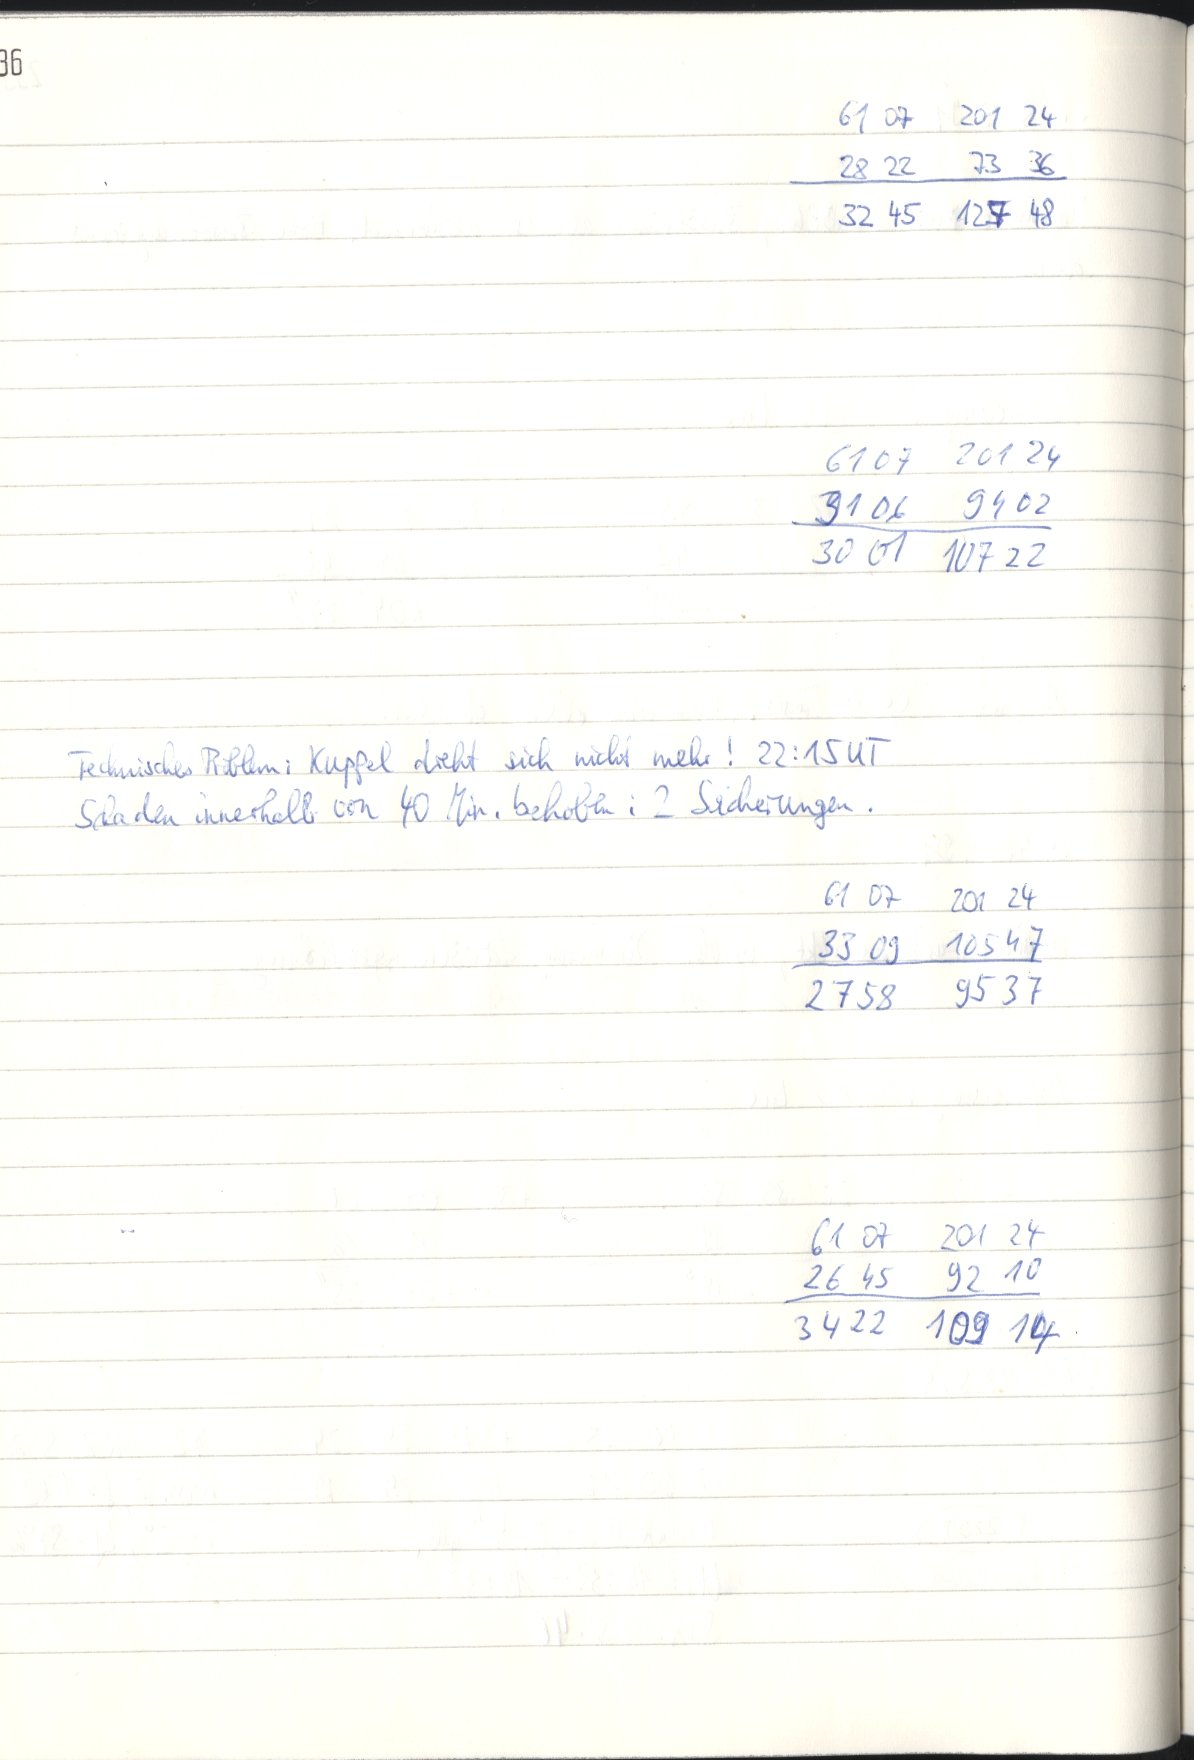 36
61 07 201 24
28 22 73 36
32 45 127 48
61 07 201 24
31 06 94 02
30 01 107 22
Technisches Problem: Kuppel dreht sich nicht mehr! 22:15 UT
Schaden innerhalb von 40 Min. behoben: 2 Sicherungen.
61 07 201 24
33 09 105 47
27 58 95 37
61 07 201 24
26 45 92 10
34 22 109 14